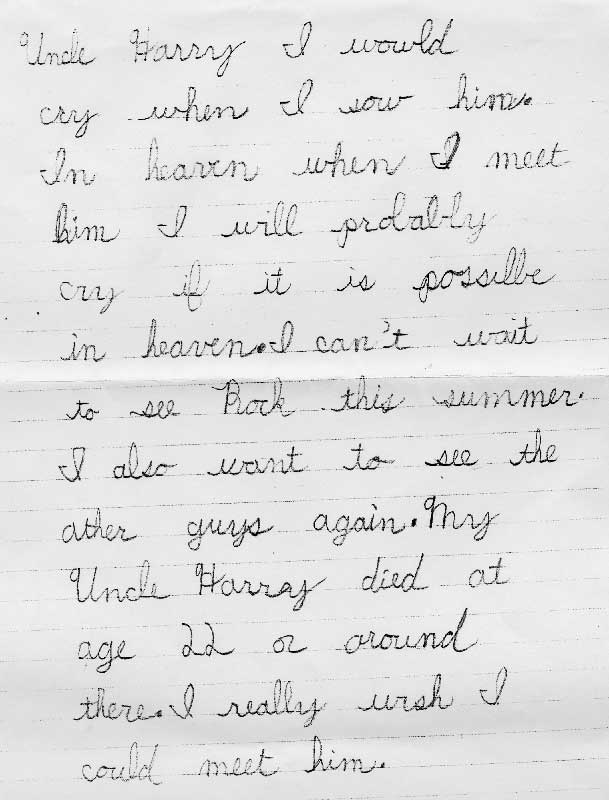 Uncle Harry I would
cry when I sow him.
In heaven when I meet
him I will probably
cry if it is possilbe
in heaven. I can't wait
to see Rock this summer.
I also want to see the
ather guys again. My
Uncle Harray died at
age 22 or around
there. I really wish I
could meet him.